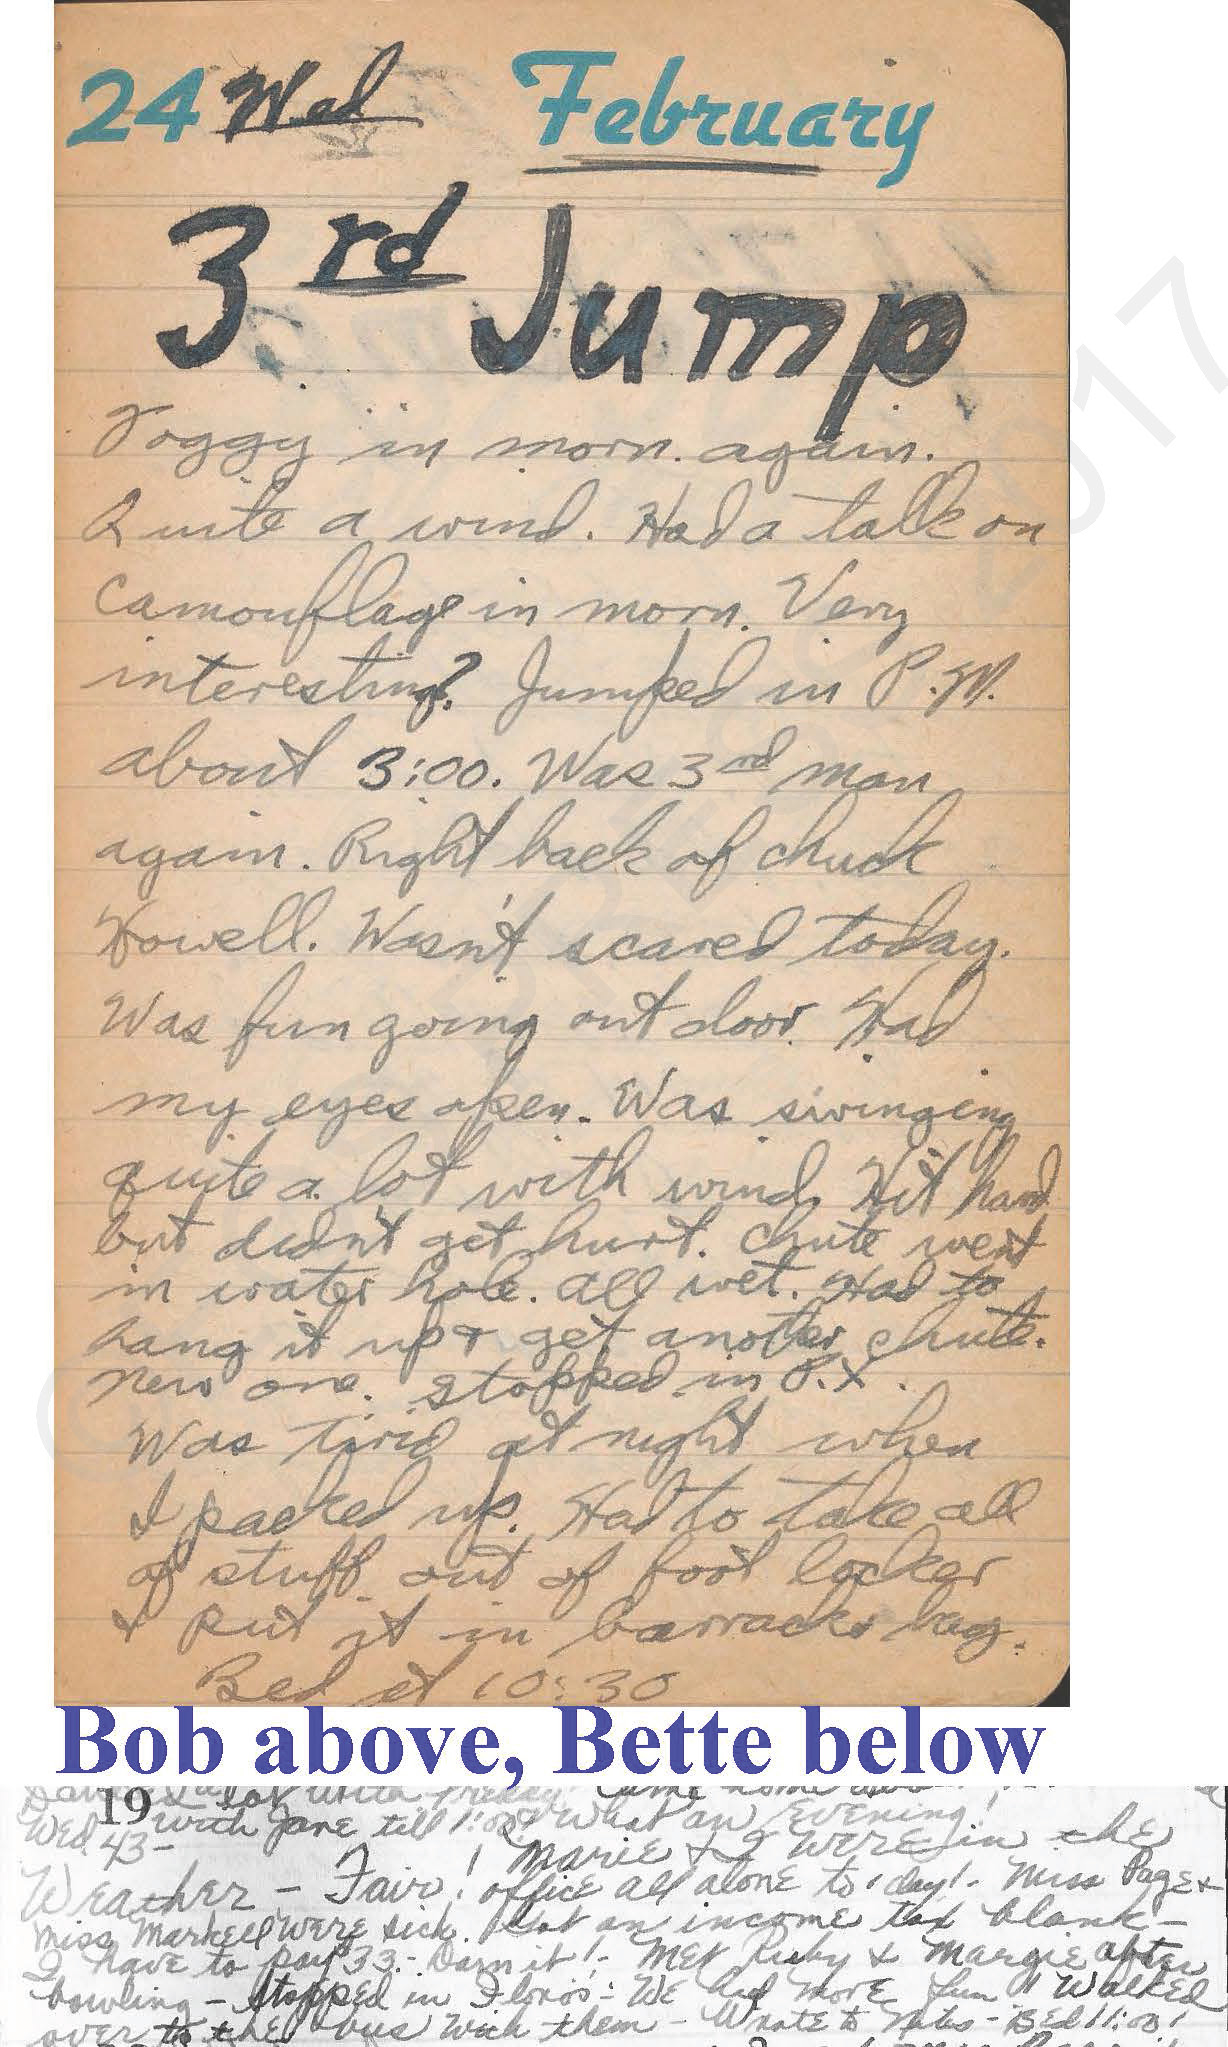 24 Wed February
3rd Jump
Foggy in morn. again.
Quite a wind. Had a talk on
Camouflage in morn. Very
interesting? Jumped in P.M.
about 3:00. Was 3rd man
again. Right back of chuck
Howell. Wasn't scared today.
Was fun going out door. Had
my eyes open. Was swinging
quite a lot with wind. Hit hard
but didn't get hurt. Chute went
in water hole. all wet. Had to
hang it up & get another chute.
new one. Stopped in P.X.
Was tired at night when
I packed up. Had to take all
of stuff out of foot locker
& put it in barracks bag.
Bed at 10:30
Bob above, Bette below
with Freddy. Came home
19 with Jane till 1:00! What an Evening!
Wed 43- ! Marie & I were in the
Weather - Fair! office all alone to-day!- Miss Page &
Miss Markell were sick. Got an income tax blank-
I have to pay $33.- Darn it!- Met Ruby & Margie after
bowling - Stopped in - We had more fun!! Walked
over to the bus with them - Wrote to - Bed 11:00!
© 2017